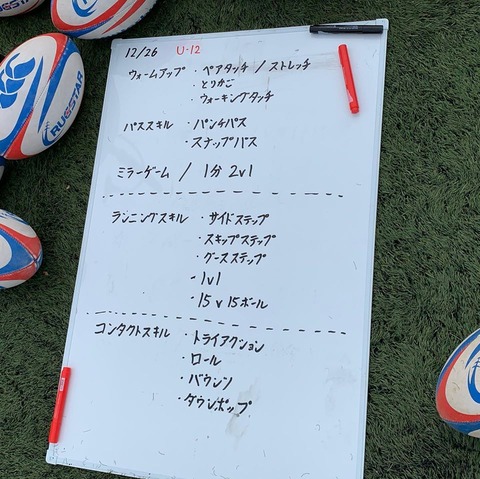 RUGSTAR
RUGSTAR
12/26 U-12
ウォームアップ ・ペアタッチ / ストレッチ
・とりかご
・ウォーキングタッチ
パススキル ・パンチパス
・スナップパス
ミラーゲーム / 1分 2v1
ランニングスキル ・サイドステップ
・スキップステップ
・グースステップ
・1v1
・15v15ボール
コンタクトスキル ・トライアクション
・ロール
・バウンソ
・ダウンポップ